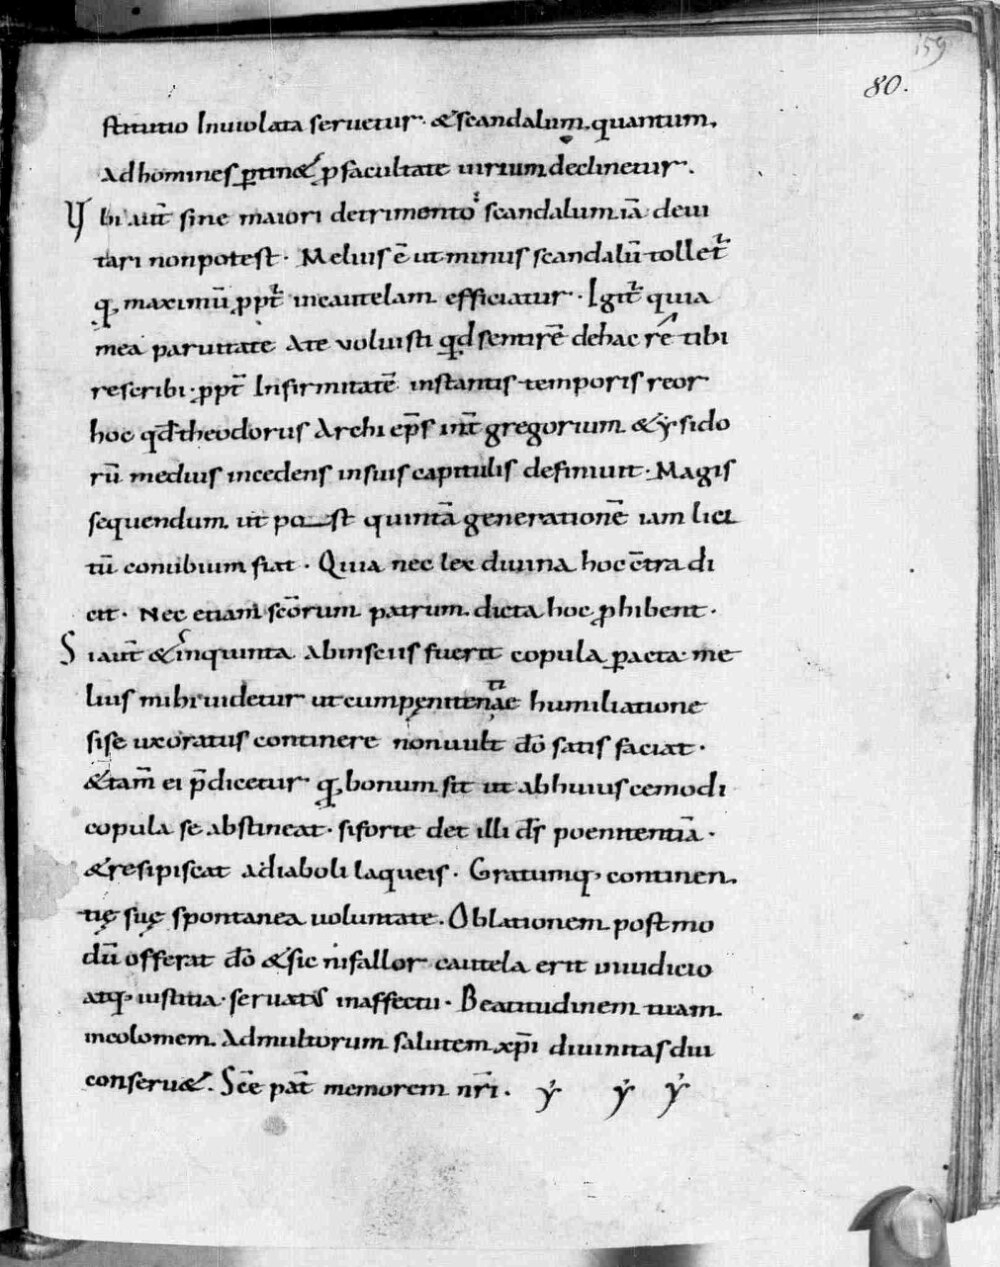 159
80.
stitutio Inuiolata seruetur. &scandalum. quantum.
Adhomines ꝑtin& ꝓ facultate uirium declinetur.
Ubi aut̄ sine maiori detrimento scandalum iā deui
tari nonpotest. Melius ē ut minus scandalū tollet᷑
qꝫ maximū ꝓpt᷑ incautelam efficiatur. Igit᷑ quia
mea paruitate Ate voluisti qd̄ sentirē dehac rē tibi
rescribi. ꝓpt̄ Infirmitatē instantis temporis reor
hoc qd̄ theodorus Archi ep̄s int̄ gregorium &ẏsido
rū medius incedens insuis capitulis definiuit. Magis
sequendum ut post quintā generationē iam lici
tū conubium fiat. Quia nec lex diuina hoc c̄tra di
cit. Nec etiam sc̄orum patrum. dicta hoc ꝓhibent.
Siaut̄ &inquinta abinsciis fuerit copula ꝑacta me
lius mihi uidetur ut cum pęnitentiae humiliatione
sise uxoratus continere nonuult dō satis faciat.
&tam̄ ei p̄dicetur qꝫ bonum sit ut abhuiuscemodi
copula se abstineat. siforte det illi ds̄ poenitentiā.
&resipiscat adiaboli laqueis. Gratumqꝫ continen
tię suę spontanea uoluntate. Oblationem postmo
dū offerat dō &sic nifallor cautela erit iniudicio
atqꝫ iustitia. seruatis inaffectu. Beatitudinem tuam.
incolomem. Admultorum salutem. xp̄i diuinitas diu
conseru&. Sc̄e pat̄ memorem nr̄i. ẏ ẏ ẏ